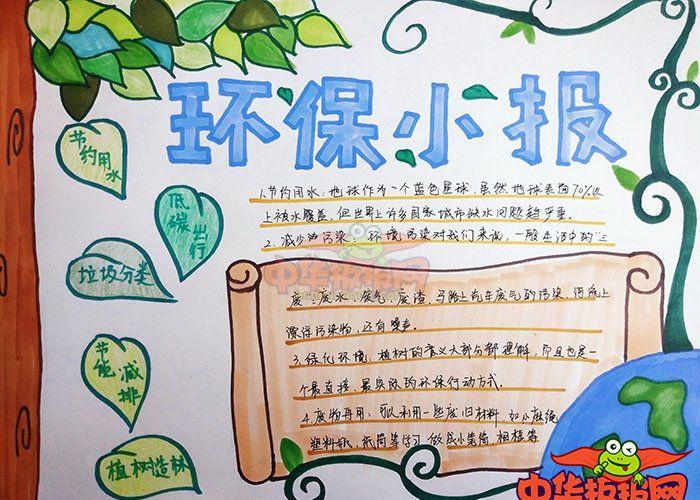 环保小报
节约用水
低碳出行
垃圾分类
节能减排
植树造林
1.节约用水:地球作为一个蓝色星球,虽然地球表面70%以
上被水覆盖,但世界上许多国家城市缺水问题趋严重。
2、减少污染:环境污染对我们来说,一般生活中的"三
废":废水、废气、废渣,马路上汽车废气的污染,河流上
漂浮污染物,还有噪声。
3.绿化环境:植树的意义大部分都理解,而且也是一
个最直接、最实际的环保行动方式.
4.废物再用:可以利用一些废旧材料,如小麻绳
塑料纸、纸筒等学习做成小笔筒、相框等
中华板报网
中华板报网